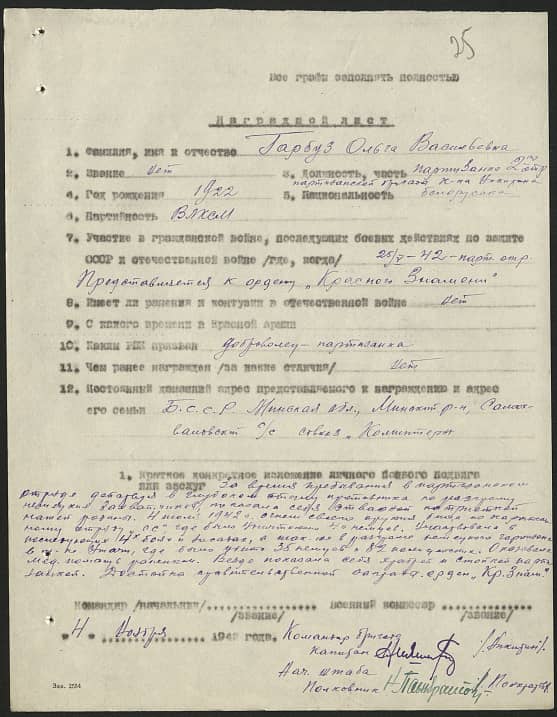 25
Все графы заполнять полностью
Наградной лист
1. Фамилия, имя и отчество Гарбуз Ольга Васильевна
2. Звание нет 3. Должность, часть партизанка 2го отр.
партизанской бригады к-на Никитина
4. Год рождения 1922 5. Национальность Белорусска
6. Партийность ВЛКСМ
7. Участие в гражданской войне, последующих боевых действиях по защите
СССР и отечественной войне /где, когда/ 25/V-42- парт. отр.
Представляется к ордену „Красного Знамени"
8. Имеет ли ранения и контузии в отечественной войне нет
9. С какого времени в Красной Армии
10. Каким РВК призван доброволец - партизанка
11. Чем ранее награжден /за какие отличия/ нет
12. Постоянный домашний адрес представляемого к награждению и адрес
его семьи Б.С.С.Р. Минская обл., Минский р-н,
с/с совхоз „Коминтерн
1. Краткое конкретное изложение личного боевого подвига
или заслуг За время пребывания в партизанском
отряде действуя в глубоком тылу противника по разгрому
немецких захватчиков, показала себя отважной патриоткой
нашей родины. 1942г. огнем своего оружия
отряду „СС" где было уничтожено немцев. Участвовала в
4х боях и засадах, а так-же в разгроме немецкого гарнизона
в м. где было убито 35 немцев и 82 полицейских. Оказывала
мед. помощь раненым. Всегда показала себя храброй и стойкой парти-
занкой. Достойна правительственной награды орден „Кр. Знам."
Командир /начальник/ Военный комиссар
/звание/ /звание/
"4" Ноября 1942 года. Командир бригады
Капитан /Никитин/
Нач. штаба
Полковник
Зак. 2224